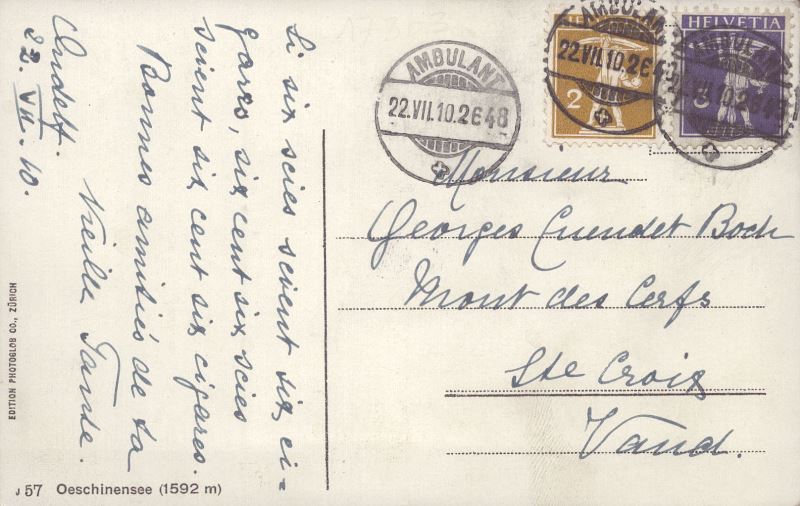 Andelf.
22. VII. 10.
Si six scies scient six ci-
gares, six cent six scies
scient six cent six cigares.
Bonnes amitiés de ta
Vieille Tante.
EDITION PHOTOGLOB CO., ZÜRICH
J 57 Oeschinensee (1592 m)
AMBULANT
22.VII.10.2648
AMBULANT
22.VII.10.26
2
HELVETIA
AMBULANT
VII.10.2648
Monsieur
Georges Cuendet Boch
Mont des Cerfs
Ste Croix
Vaud.